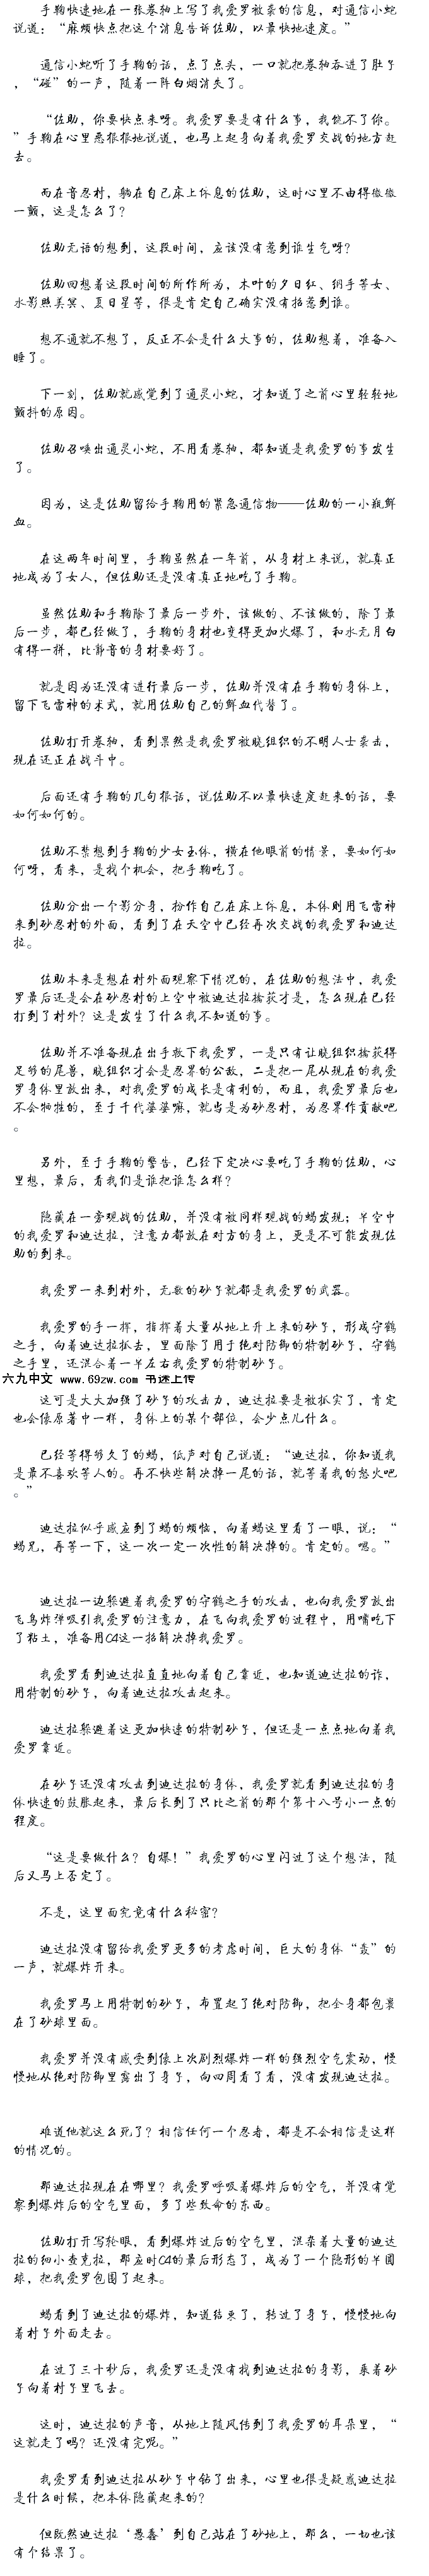 手鞠快速地在一张卷轴上写了我爱罗被袭的信息，对通信小蛇
说道：“麻烦快点把这个消息告诉佐助，以最快地速度。”
通信小蛇听了手鞠的话，点了点头，一口就把卷轴吞进了肚子
，“碰”的一声，随着一阵白烟消失了。
“佐助，你要快点来呀。我爱罗要是有什么事，我饶不了你。
”手鞠在心里恶狠狠地说道，也马上起身向着我爱罗交战的地方赶
去。
而在音忍村，躺在自己床上休息的佐助，这时心里不由得微微
一颤，这是怎么了？
佐助无语的想到，这段时间，应该没有惹到谁生气呀？
佐助回想着这段时间的所作所为，木叶的夕日红、纲手等女、
水影照美冥、夏日星等，很是肯定自己确实没有招惹到谁。
想不通就不想了，反正不会是什么大事的，佐助想着，准备入
睡了。
下一刻，佐助就感觉到了通灵小蛇，才知道了之前心里轻轻地
颤抖的原因。
佐助召唤出通灵小蛇，不用看卷轴，都知道是我爱罗的事发生
了。
因为，这是佐助留给手鞠用的紧急通信物——佐助的一小瓶鲜
血。
在这两年时间里，手鞠虽然在一年前，从身材上来说，就真正
地成为了女人，但佐助还是没有真正地吃了手鞠。
虽然佐助和手鞠除了最后一步外，该做的、不该做的，除了最
后一步，都已经做了，手鞠的身材也变得更加火爆了，和水无月白
有得一拼，比静音的身材要好了。
就是因为还没有进行最后一步，佐助并没有在手鞠的身体上，
留下飞雷神的术式，就用佐助自己的鲜血代替了。
佐助打开卷轴，看到果然是我爱罗被晓组织的不明人士袭击，
现在还正在战斗中。
后面还有手鞠的几句狠话，说佐助不以最快速度赶来的话，要
如何如何的。
佐助不禁想到手鞠的少女玉体，横在他眼前的情景，要如何如
何呀，看来，是找个机会，把手鞠吃了。
佐助分出一个影分身，扮作自己在床上休息，本体则用飞雷神
来到砂忍村的外面，看到了在天空中已经再次交战的我爱罗和迪达
拉。
佐助本来是想在村外面观察下情况的，在佐助的想法中，我爱
罗最后还是会在砂忍村的上空中被迪达拉擒获才是，怎么现在已经
打到了村外？这是发生了什么我不知道的事。
佐助并不准备现在出手救下我爱罗，一是只有让晓组织擒获得
足够的尾兽，晓组织才会是忍界的公敌，二是把一尾从现在的我爱
罗身体里放出来，对我爱罗的成长是有利的，而且，我爱罗最后也
不会牺牲的，至于千代婆婆嘛，就当是为砂忍村，为忍界作贡献吧
。
另外，至于手鞠的警告，已经下定决心要吃了手鞠的佐助，心
里想，最后，看我们是谁把谁怎么样？
隐藏在一旁观战的佐助，并没有被同样观战的蝎发现；半空中
的我爱罗和迪达拉，注意力都放在对方的身上，更是不可能发现佐
助的到来。
我爱罗一来到村外，无数的砂子就都是我爱罗的武器。
我爱罗的手一挥，指挥着大量从地上升上来的砂子，形成守鹤
之手，向着迪达拉抓去，里面除了用于绝对防御的特制砂子，守鹤
之手里，还混合着一半左右我爱罗的特制砂子。
六九中文 www.69zw.com 书迷上传
这可是大大加强了砂子的攻击力，迪达拉要是被抓实了，肯定
也会像原著中一样，身体上的某个部位，会少点儿什么。
已经等得够久了的蝎，低声对自己说道：“迪达拉，你知道我
是最不喜欢等人的。再不快些解决掉一尾的话，就等着我的怒火吧
。”
迪达拉似乎感应到了蝎的烦恼，向着蝎这里看了一眼，说：“
蝎兄，再等一下，这一次一定一次性的解决掉的。肯定的。嗯。”
迪达拉一边躲避着我爱罗的守鹤之手的攻击，也向我爱罗放出
飞鸟炸弹吸引我爱罗的注意力，在飞向我爱罗的过程中，用嘴吃下
了粘土，准备用C4这一招解决掉我爱罗。
我爱罗看到迪达拉直直地向着自己靠近，也知道迪达拉的诈，
用特制的砂子，向着迪达拉攻击起来。
迪达拉躲避着这更加快速的特制砂子，但还是一点点地向着我
爱罗靠近。
在砂子还没有攻击到迪达拉的身体，我爱罗就看到迪达拉的身
体快速的鼓胀起来，最后长到了只比之前的那个第十八号小一点的
程度。
“这是要做什么？自爆！”我爱罗的心里闪过了这个想法，随
后又马上否定了。
不是，这里面究竟有什么秘密？
迪达拉没有留给我爱罗更多的考虑时间，巨大的身体“轰”的
一声，就爆炸开来。
我爱罗马上用特制的砂子，布置起了绝对防御，把全身都包裹
在了砂球里面。
我爱罗并没有感受到像上次剧烈爆炸一样的强烈空气震动，慢
慢地从绝对防御里露出了身子，向四周看了看，没有发现迪达拉。
难道他就这么死了？相信任何一个忍者，都是不会相信是这样
的情况的。
那迪达拉现在在哪里？我爱罗呼吸着爆炸后的空气，并没有觉
察到爆炸后的空气里面，多了些致命的东西。
佐助打开写轮眼，看到爆炸过后的空气里，混杂着大量的迪达
拉的细小查克拉，那应时C4的最后形态了，成为了一个隐形的半圆
球，把我爱罗包围了起来。
蝎看到了迪达拉的爆炸，知道结束了，转过了身子，慢慢地向
着村子外面走去。
在过了三十秒后，我爱罗还是没有找到迪达拉的身影，乘着砂
子向着村子里飞去。
这时，迪达拉的声音，从地上随风传到了我爱罗的耳朵里，“
这就走了吗？还没有完呢。”
我爱罗看到迪达拉从砂子中钻了出来，心里也很是疑惑迪达拉
是什么时候，把本体隐藏起来的？
但既然迪达拉‘愚蠢’到自己站在了砂地上，那么，一切也该
有个结果了。